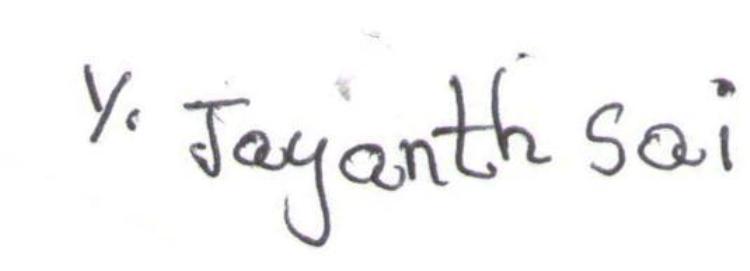 Y. Jayanth Sai